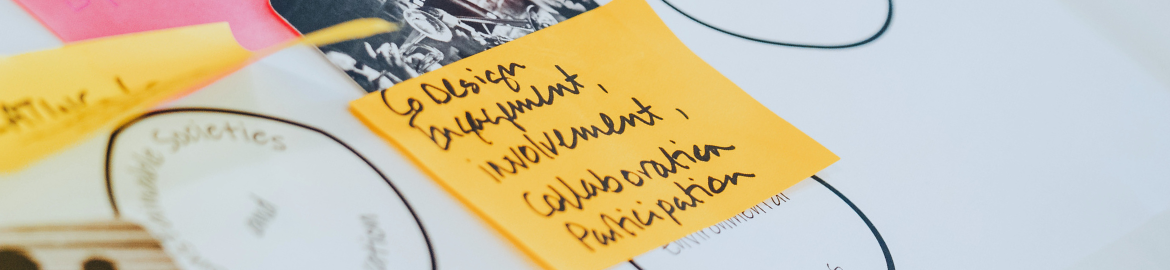 CoDesign
Engagement,
involvement,
Collaboration
Participation
Societies
and
Environmental